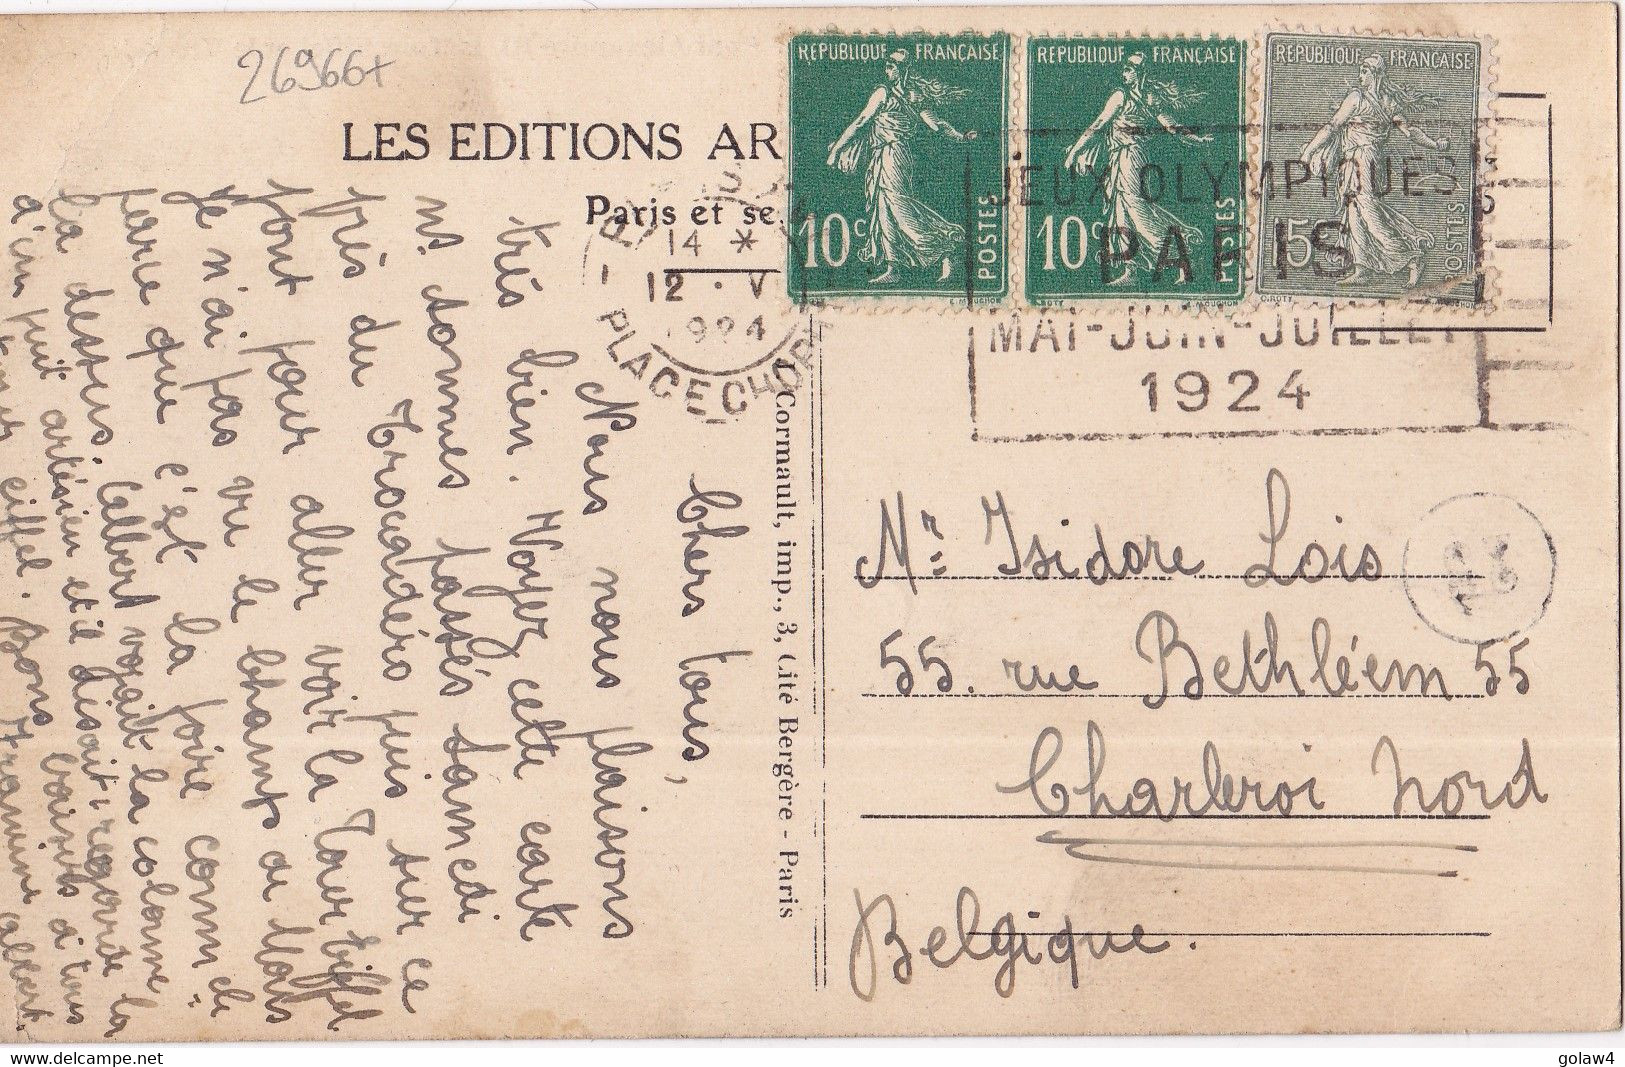 26966+
LES EDITIONS AR
Paris et se
14 *
12 . V
1924
PLACE CHOPIN
REPUBLIQUE FRANÇAISE
10c
POSTES
REPUBLIQUE FRANÇAISE
10c
POSTES
REPUBLIQUE FRANÇAISE
15
POSTES
JEUX OLYMPIQUES
PARIS
MAI-JUIN-JUILLET
1924
Cormault, imp., 3, Cité Bergère - Paris
Chers tous,
Nous nous plaisons
très bien. Voyez cette carte
ns. sommes passés samedi
près du Trocadéro puis sur ce
pont pour aller voir la Tour Eiffel
je n'ai pas vu le Champs de Mars
parce que c'est la foire comm de
la dessus. Albert voyait la colonne =
d'un puit artésien et il disait: regarde la
tour eiffel. Bons baisers à tous
Franine albert.
Mr: Isidore Lois
55. rue Bethléem 55
Charleroi Nord
Belgique.
delcampe.net
golaw4